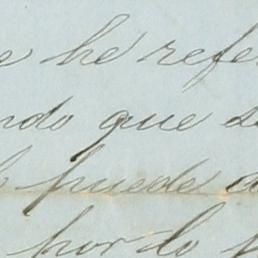 e he refe
ndo que s
puede a
por lo p